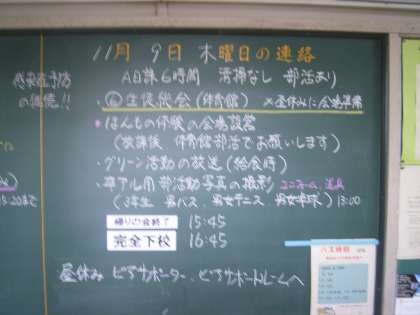 11月 9日 木曜日の連絡
A日課6時間 清掃なし 部活あり
感染症予防
の徹底!!
・⑥生徒総会(体育館) ※昼休みに会場準備
*ほんもの体験の会場設営
(放課後 体育館部活でお願いします)
・グリーン活動の放送(給食時)
・卒アル用部活動写真の撮影 ユニフォーム、道具
(3年生 男バス、男女テニス、男女卓球) 13:00
15:20まで
帰りの会終了 15:45
完全下校 16:45
昼休み ピアサポーター、ピアサポートルームへ